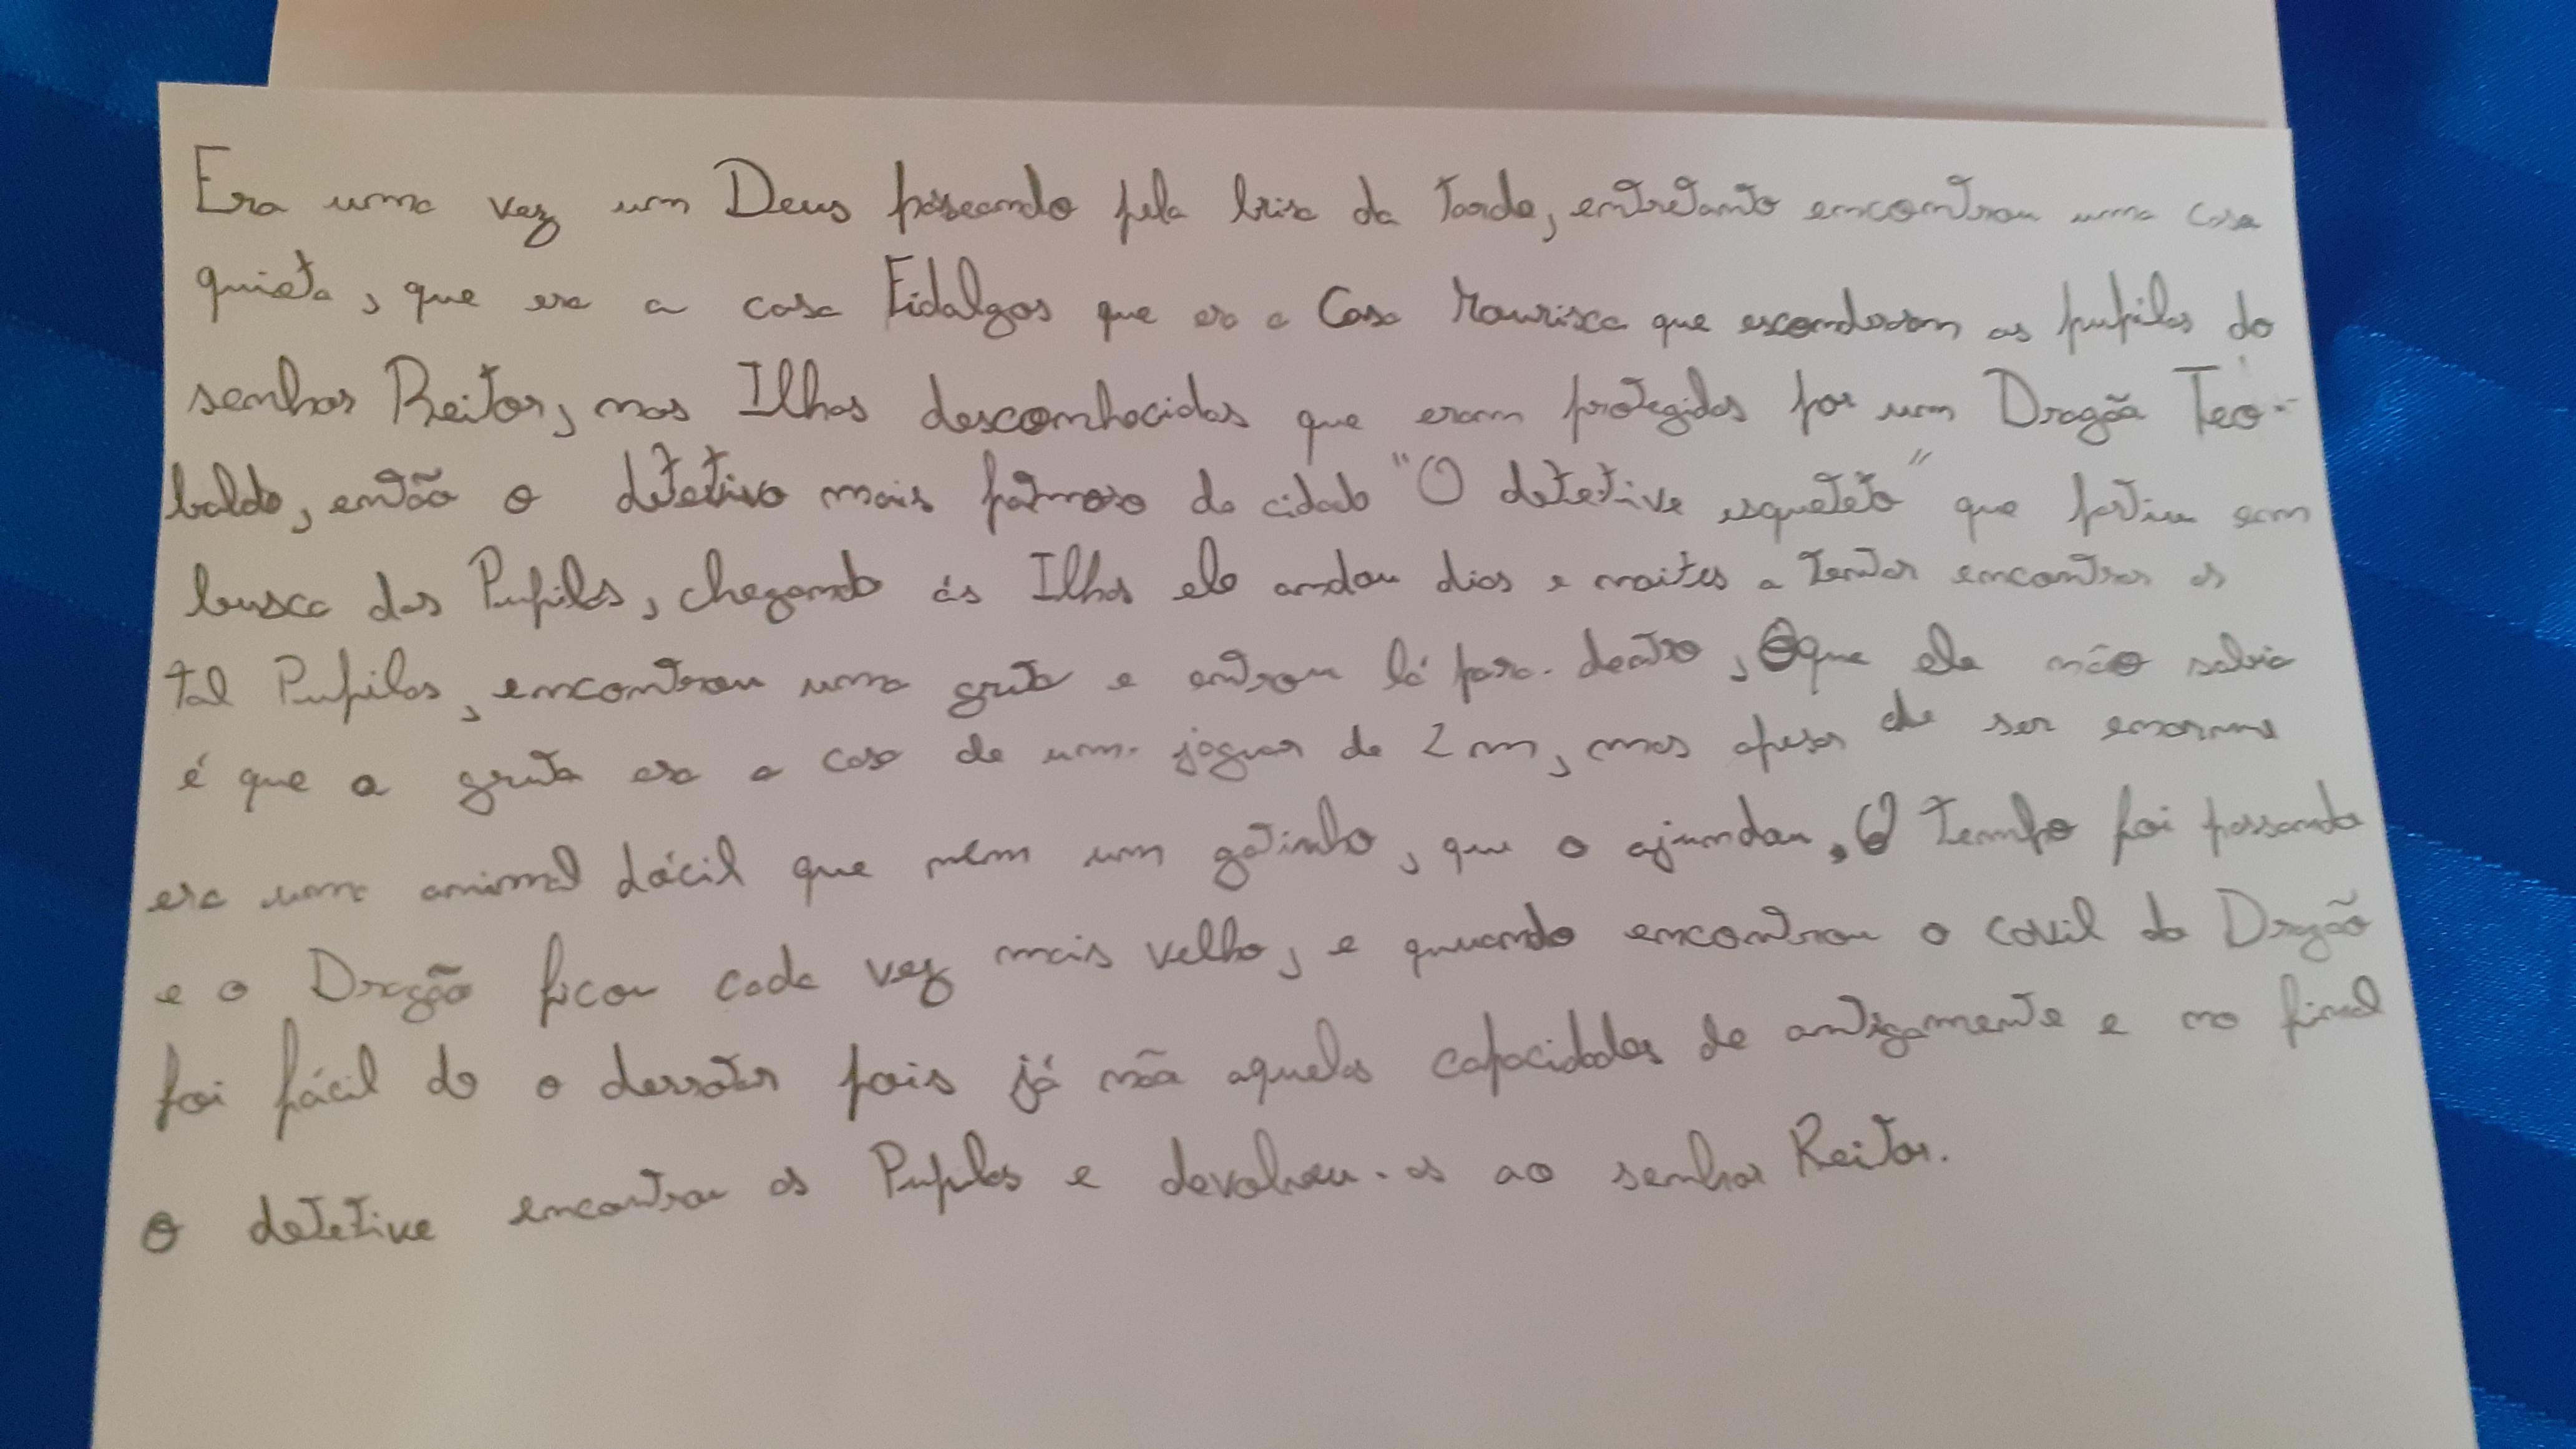 Era uma vez um Deus passeando pela brisa da tarde, entretanto encontrou uma casa
quieta, que era a casa Fidalgos que era a Casa Mourisca que esconderam as pupilas do
senhor Reitor, nas Ilhas desconhecidas que eram protegidas por um Dragão Teo-
baldo, então o detetive mais famoso da cidade "O detetive esqueleto" que partiu em
busca das Pupilas, chegando ás Ilhas ele andou dias e noites a tentar encontrar as
tal Pupilas, encontrou uma gruta e entrou lá para dentro, O que ele não sabia
é que a gruta era a casa de um jaguar de 2 m, mas apesar de ser enorme
era uma animal dócil que nem um gatinho, que o ajundou. O tempo foi passando
e o Dragão ficou cada vez mais velho, e quuando encontrou o covil do Dragão
foi fácil de o derrotar pois já não aquelas capacidades de antigamente e no final
o detetive encontrou as Pupilas e devolveu-as ao senhor Reitor.